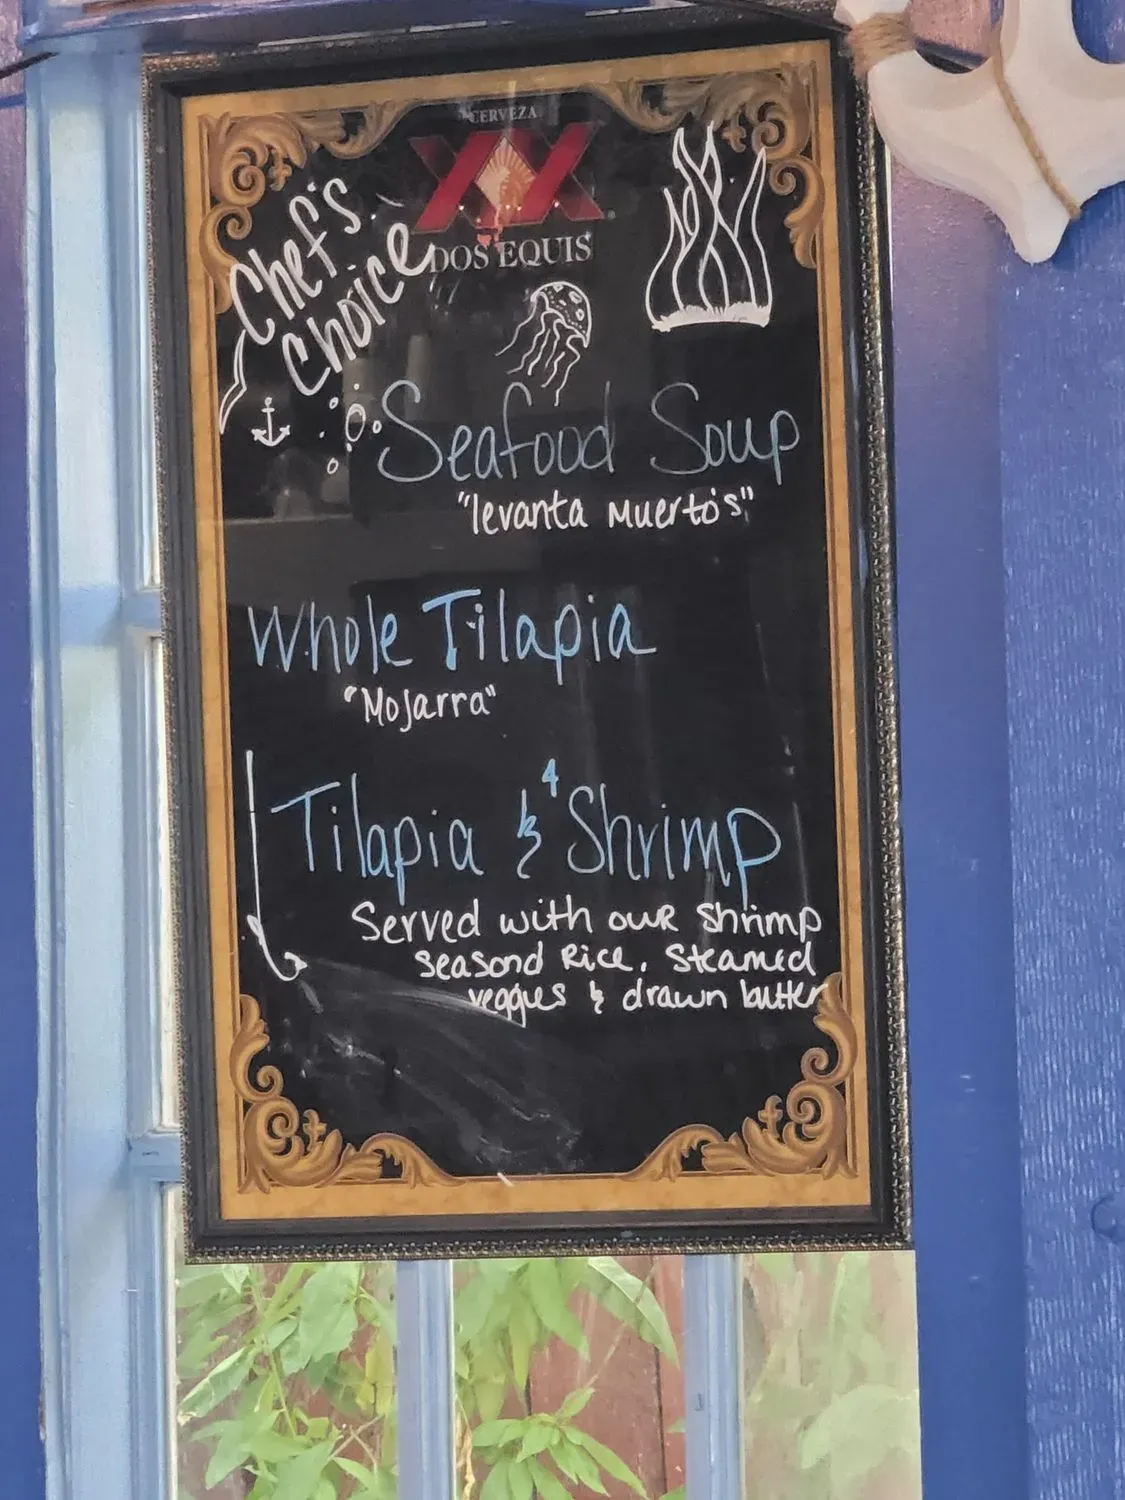 CERVEZA
XX
DOS EQUIS
Chef's
Choice
Seafood Soup
"levanta Muerto's"
Whole Tilapia
"Mojarra"
Tilapia & 4 Shrimp
Served with our shrimp
seasond Rice, Steamed
veggies & drawn butter